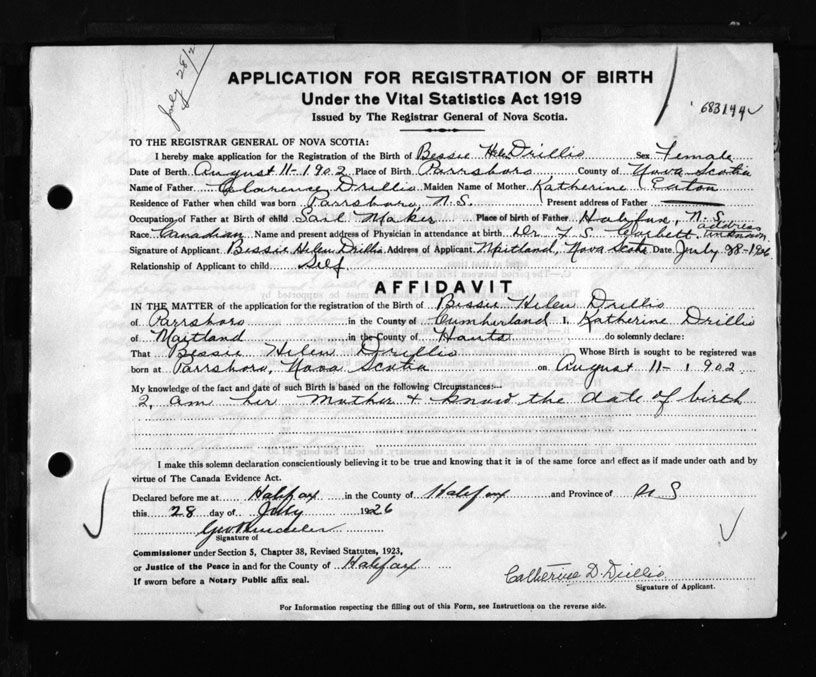 July 28/2
APPLICATION FOR REGISTRATION OF BIRTH
Under the Vital Statistics Act 1919
Issued by The Registrar General of Nova Scotia.
683144
TO THE REGISTRAR GENERAL OF NOVA SCOTIA:
I hereby make application for the Registration of the Birth of Bessie Helen Drillio Sex Female
Date of Birth August 11-1902 Place of Birth Parrsboro, County of Nova Scotia
Name of Father Clarence Drillio Maiden Name of Mother Katherine Eaton
Residence of Father when child was born Parrsboro, N.S. Present address of Father
Occupation of Father at Birth of child Sail Maker Place of birth of Father Halifax, N.S.
Race Canadian Name and present address of Physician in attendance at birth Dr. F. S. Corbett address unknown
Signature of Applicant Bessie Helen Drillio Address of Applicant Maitland, Nova Scotia Date July 28-1926
Relationship of Applicant to child Self
AFFIDAVIT
IN THE MATTER of the application for the registration of the Birth of Bessie Helen Drillio
of Parrsboro in the County of Cumberland I, Katherine Drillio
of Maitland in the County of Hants do solemnly declare:
That Bessie Helen Drillio Whose Birth is sought to be registered was
born at Parrsboro, Nova Scotia on August 11-1902
My knowledge of the fact and date of such Birth is based on the following Circumstances:—
I am her Mother & know the date of birth
I make this solemn declaration conscientiously believing it to be true and knowing that it is of the same force and effect as if made under oath and by
virtue of The Canada Evidence Act.
Declared before me at Halifax in the County of Halifax and Province of N S
this 28 day of July 1926
Signature of
Commissioner under Section 5, Chapter 38, Revised Statutes, 1923,
or Justice of the Peace in and for the County of Halifax
If sworn before a Notary Public affix seal.
Catherine D. Drillio
Signature of Applicant.
For Information respecting the filling out of this Form, see Instructions on the reverse side.